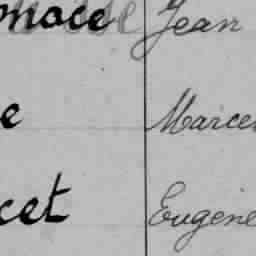 onace Jean
e Marcel
cet Eugene